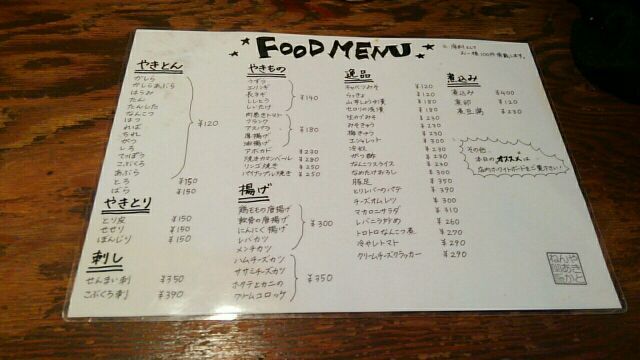 FOOD MENU
※ 席料として
お一人様100円頂戴します。
やきとん
かしら
かしらあぶら
はらみ
たん
たんした
なんこつ
はつ
ればー
ちれ
がつ
しろ
てっぽう
こぶくろ
あぶら
¥120
とろ ¥150
ばら ¥150
やきとり
とり皮 ¥150
せせり ¥150
ぼんじり ¥150
刺し
せんまい刺 ¥350
こぶくろ刺 ¥390
やきもの
うずら
エリンギ
長ネギ
ししとう
しいたけ
¥140
肉巻きトマト
フランク
アスパラ
厚揚げ
油揚げ
¥180
アボカド ¥230
焼きカマンベール ¥280
リンゴ焼き ¥250
パイナップル焼き ¥250
揚げ
鶏ももの唐揚げ
軟骨の唐揚げ
にんにく揚げ
レバカツ
メンチカツ
¥300
ハムチーズカツ
ササミチーズカツ
ホタテとカニの
クリームコロッケ
¥350
逸品
キャベツみそ ¥120
らっきょ ¥120
山芋しょうゆ漬 ¥180
セロリの浅漬 ¥180
味カブみそ ¥230
みそきゅう ¥230
梅きゅう ¥230
エシャレット ¥300
冷奴 ¥230
がつ酢 ¥230
なんこつスライス ¥230
なめたけおろし ¥300
豚足 ¥350
とりレバーのパテ ¥390
チーズオムレツ ¥300
マカロニサラダ ¥310
レバニラ炒め ¥260
トロトロなんこつ煮 ¥270
冷やしトマト ¥290
クリームチーズクラッカー ¥290
煮込み
煮込み ¥400
煮卵 ¥120
煮豆腐 ¥230
その他
本日のオススメは
店内ホワイトボードをご覧下さい!